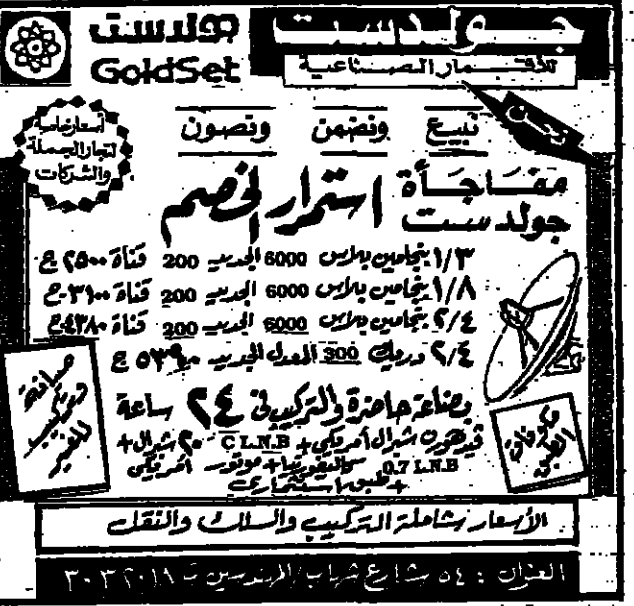 جولدست
جولدست
GoldSet
للأقمار الصناعية
نحن
نبيع ونضمن ونصون
أسعار خاصة
لتجار الجملة
والشركات
مفاجأة
جولدست
استمرار الخصم
١/٣ بنجامين بلاس 6000 الجديد 200 قناة ٢٥٠٠ ج
١/٨ بنجامين بلاس 6000 الجديد 200 قناة ٣١٠٠ ج
٢/٤ بنجامين بلاس 6000 الجديد 200 قناة ٤٣٨٠ ج
٢/٤ دريك 300 المعدل الجديد ج
صيانة
وتركيب
للغير
بضاعة حاضرة والتركيب في ٢٤ ساعة
فيدهورن شبرال أمريكي + C L.N.B ٢٠ شبرال +
0.7 L.N.B كاليفورنيا + موتور أمريكي
+ طبق استثماري
الأسعار شاملة التركيب والسلك والنقل
العنوان : ٥٤ شارع شهاب / المهندسين ت ٣٠٣٢٠١٨